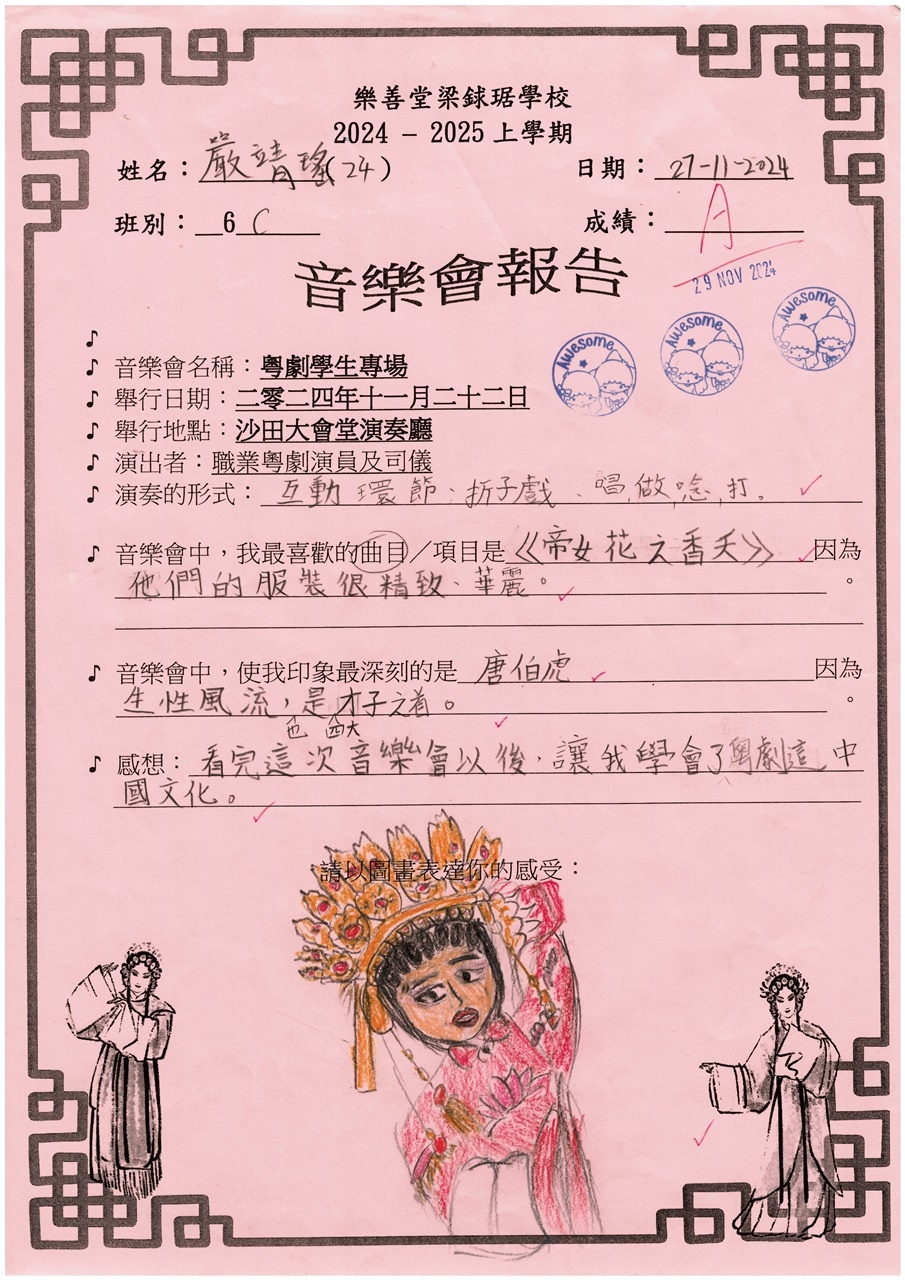 樂善堂梁銶琚學校
2024 – 2025 上學期
姓名：嚴靖瑤(24)
日期：27-11-2024
班別：6C
成績：A
29 NOV 2024
音樂會報告
Awesome
Awesome
Awesome
♪
♪ 音樂會名稱：粵劇學生專場
♪ 舉行日期：二零二四年十一月二十二日
♪ 舉行地點：沙田大會堂演奏廳
♪ 演出者：職業粵劇演員及司儀
♪ 演奏的形式：互動環節、折子戲、唱,做,唸,打。
♪ 音樂會中，我最喜歡的曲目／項目是《帝女花之香夭》因為
他們的服裝很精致、華麗。 。
♪ 音樂會中，使我印象最深刻的是 唐伯虎 因為
生性風流，是才子之首。 。
也 四大
♪ 感想：看完這次音樂會以後，讓我學會了粵劇這中
國文化。
請以圖畫表達你的感受：